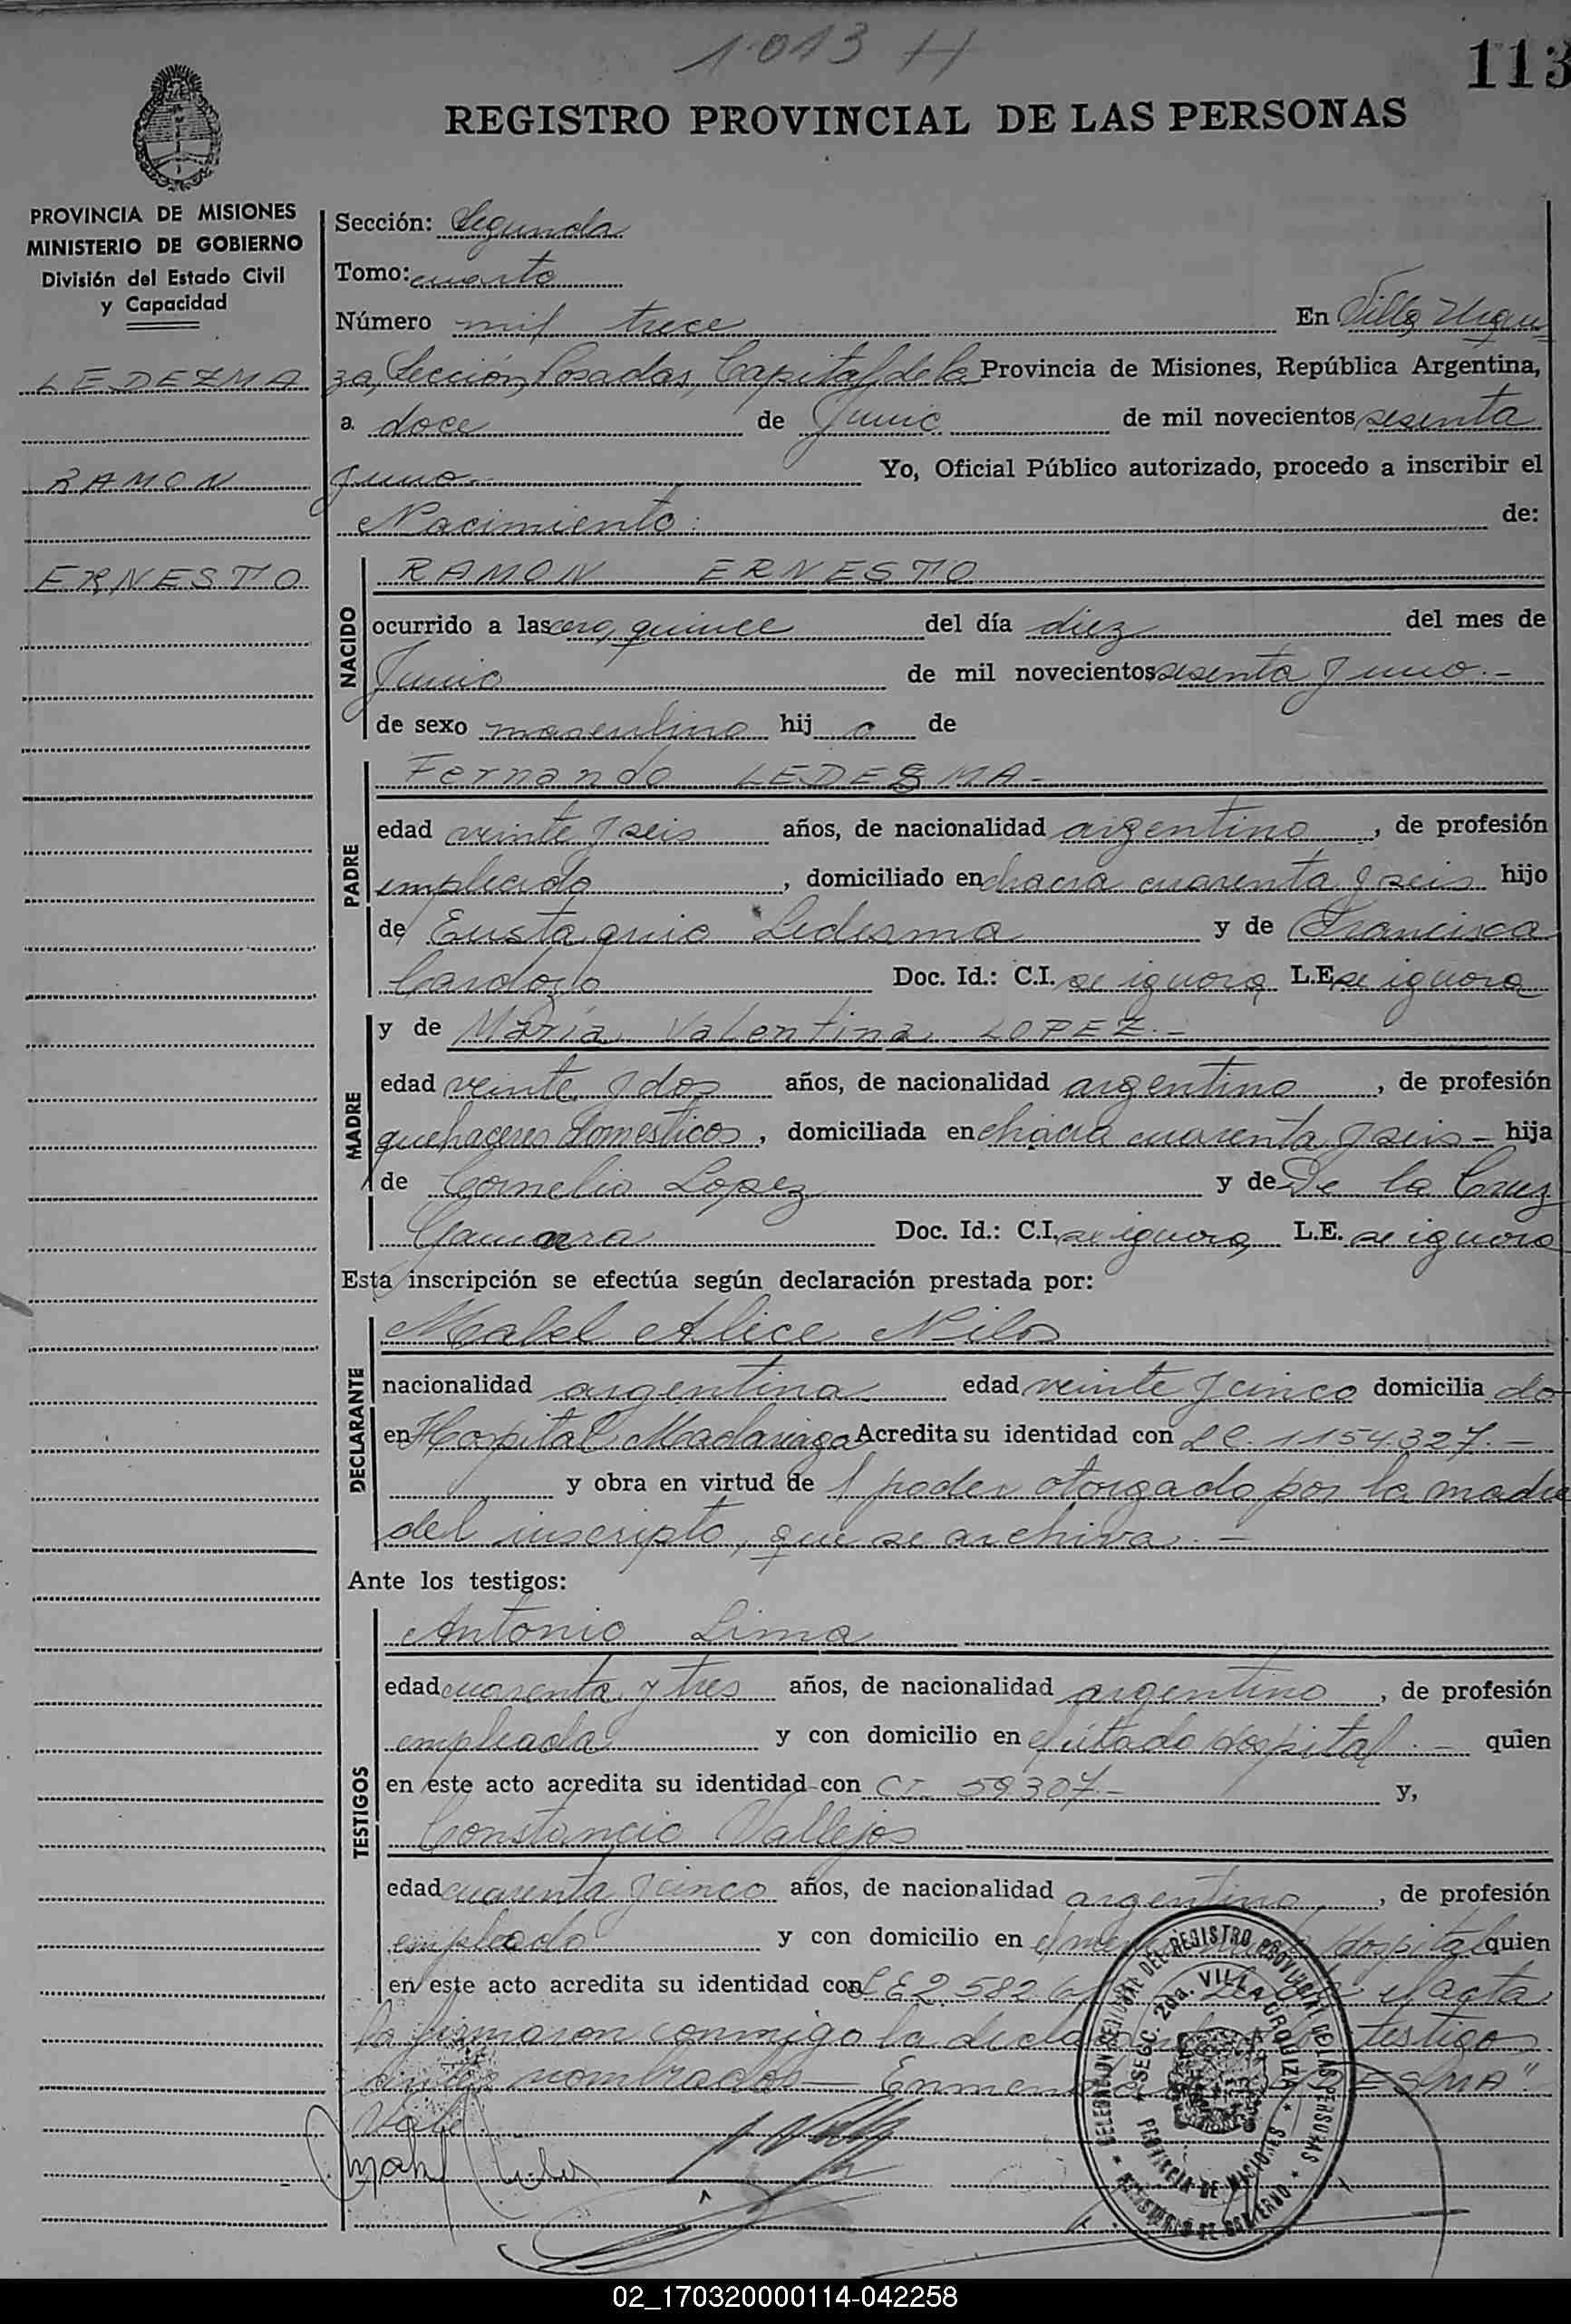 1013 H
113
REGISTRO PROVINCIAL DE LAS PERSONAS
PROVINCIA DE MISIONES
MINISTERIO DE GOBIERNO
División del Estado Civil
y Capacidad
LEDEZMA
RAMON
ERNESTO
Sección: Segunda
Tomo: cuarto
Número mil trece En Villa Urqui-
za, Sección, Posadas, Capital de la Provincia de Misiones, República Argentina,
a doce de Junio de mil novecientos sesenta
y uno.- Yo, Oficial Público autorizado, procedo a inscribir el
Nacimiento de:
NACIDO
RAMON ERNESTO
ocurrido a las cero, quince del día diez del mes de
Junio de mil novecientos sesenta y uno.-
de sexo masculino hij o de
PADRE
Fernando LEDESMA-
edad veinte y seis años, de nacionalidad argentino, de profesión
empleado, domiciliado en chacra cuarenta y seis hijo
de Eustaquio Ledesma y de Francisca
Cardozo Doc. Id.: C.I. se ignora L.E. se ignora
MADRE
y de María Valentina LOPEZ.-
edad veinte y dos años, de nacionalidad argentina, de profesión
quehaceres domesticos, domiciliada en chacra cuarenta y seis- hija
de Cornelio Lopez y de De la Cruz
Gamarra Doc. Id.: C.I. se ignora L.E. se ignora
Esta inscripción se efectúa según declaración prestada por:
DECLARANTE
Mabel Alice Nilos
nacionalidad argentina edad veinte y cinco domicilia do
en Hospital Madariaga Acredita su identidad con LC. 1154.327.-
y obra en virtud de / poder otorgado por la madre
del inscripto, que se archiva.-
Ante los testigos:
TESTIGOS
Antonio Lima
edad cuarenta y tres años, de nacionalidad argentino, de profesión
empleado y con domicilio en el citado hospital.- quien
en este acto acredita su identidad con CI- 59307- y,
Constancio Vallejos
edad cuarenta y cinco años, de nacionalidad argentino, de profesión
empleado y con domicilio en el Hospital quien
en este acto acredita su identidad con LE 2.582 el acta
la firmaron conmigo la testigo
antes nombrados- ESMA"
Vale
DELEGACION SECCIONAL DEL REGISTRO PROVINCIAL DE LAS PERSONAS
SECC. 2da. VILLA URQUIZA
PROVINCIA DE MISIONES
MINISTERIO DE GOBIERNO
02_170320000114-042258